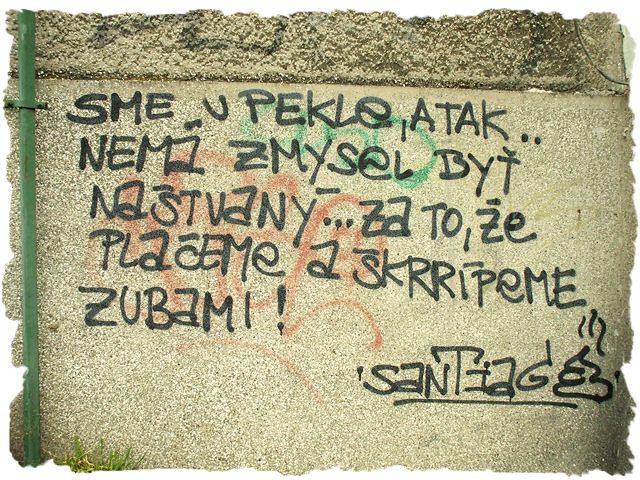 SME U PEKLE, A TAK..
NEMÁ ZMYSEL BYŤ
NAŠTVANÝ... ZA TO, ŽE
PLAČEME A ŠKRRÍPEME
ZUBAMI!
SANTIAGE